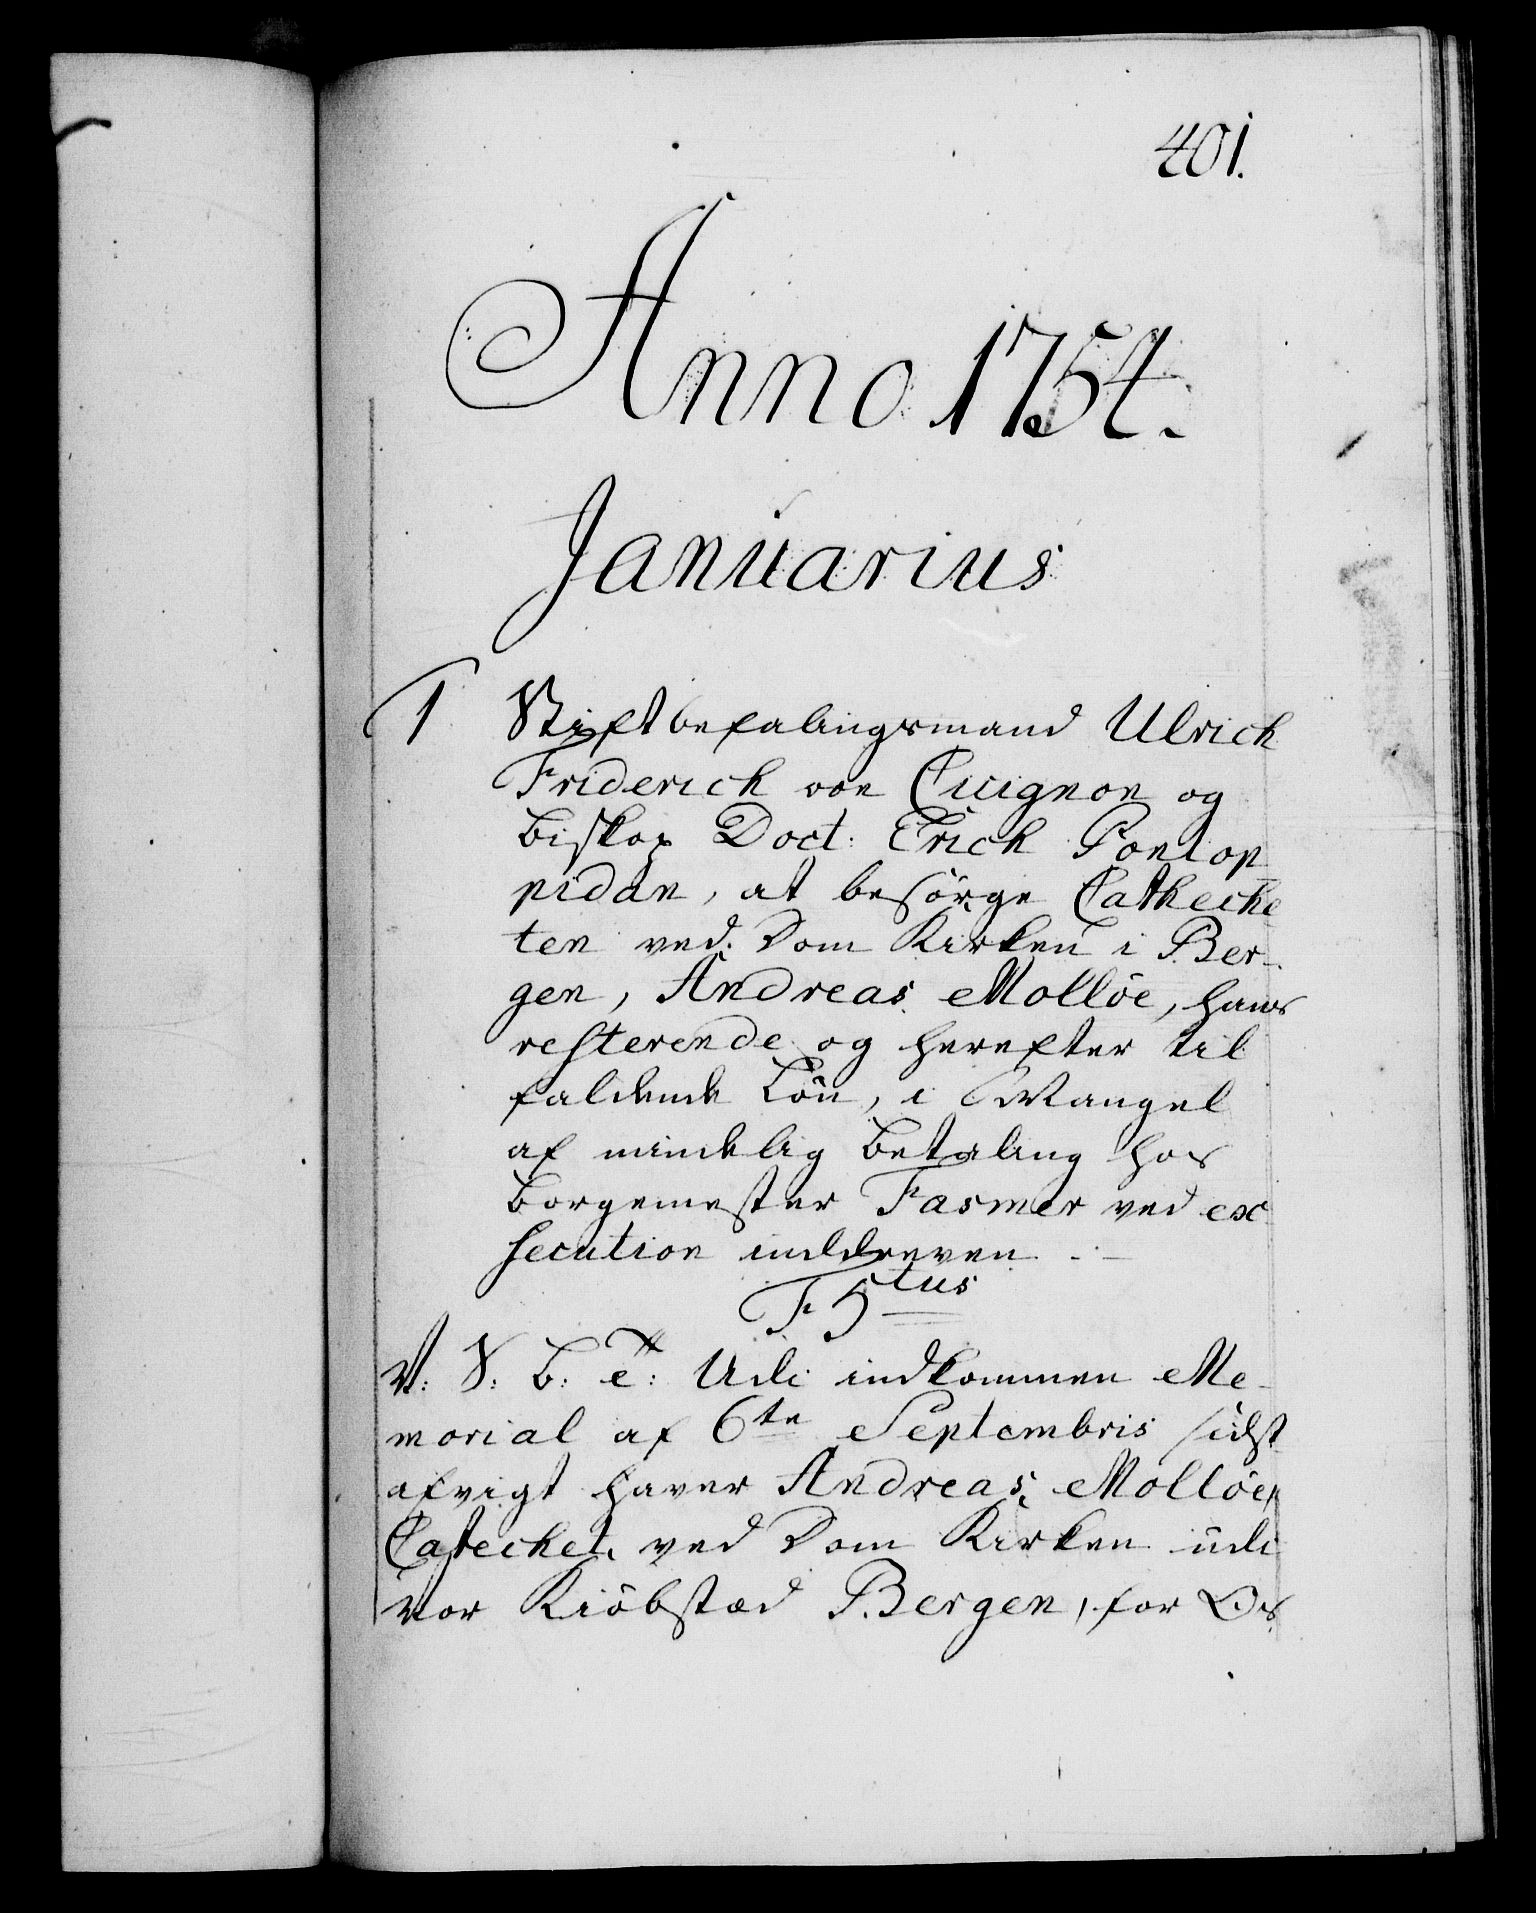 401.
Anno 1754.
Januarius
1 Stiftbefalingsmand Ulrich
Friderich von Cicignon og
biskop Doct: Erich Pontop-
pidan, at besörge Catheche
ten ved Dom Kirken i Ber-
gen, Andreas Mollöe, hans
resterende og herefter til
faldende Lön, i Mangel
af mindelig betaling hos
borgemester Fasmer ved ex
secution inddreven. -
F 5tus
V: S: b: e: Udi indkommen Me-
morial af 6te Septembris sidst
afvigt haver Andreas Mollöe,
Catechet ved Dom Kirken udi
vor Kiöbstæd Bergen, for Os